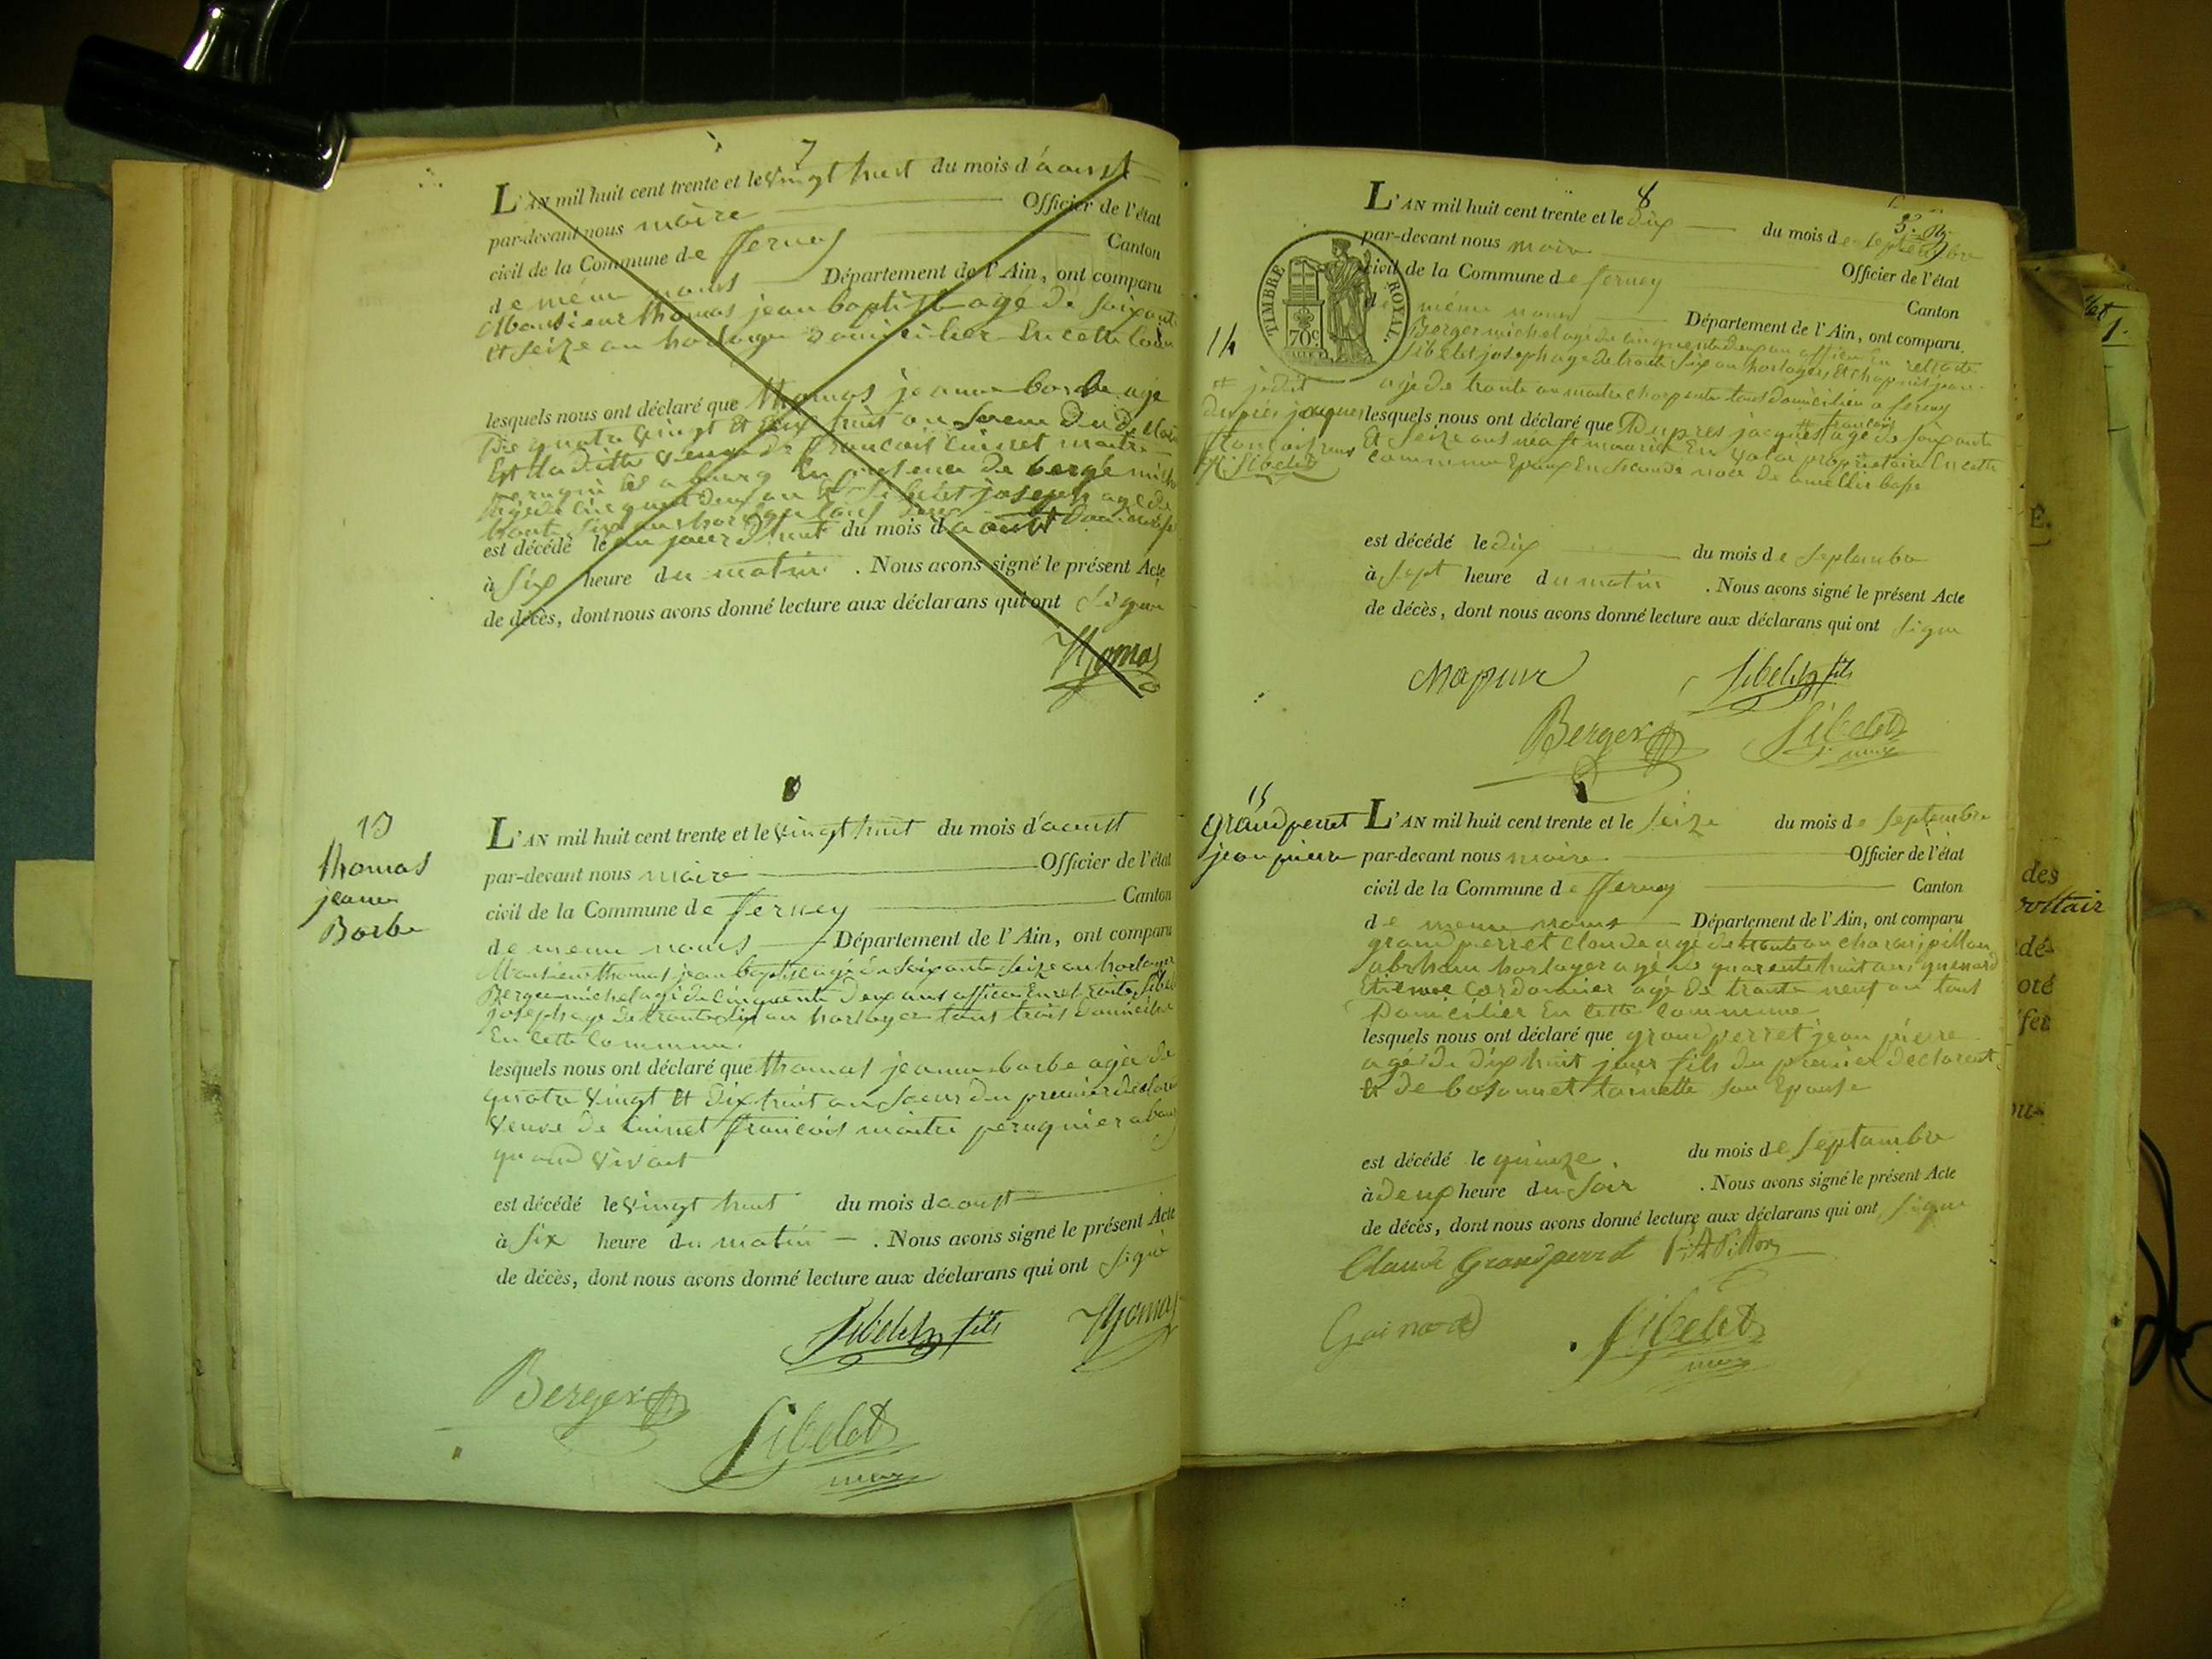 7
L'AN mil huit cent trente et le vingt huit du mois d'aoust
par-devant nous maire Officier de l'état
civil de la Commune de fferney Canton
de même noms Département de l'Ain, ont comparu
Monsieur thomas jean baptiste agé de soixante
et seize an horloger domicilier En cette
lesquels nous ont déclaré que thomas jeanne barbe agé
de quatre vingt et dix huit an soeur du
Est veuve de francois Cuinet maitre
a bourg En presence de bergé
agé de cinquante deux an Et Sibelet joseph age de
trante six an
est décédé le au jour d'huit du mois d'aoust
à six heure du matin . Nous avons signé le présent Acte
de décès, dont nous avons donné lecture aux déclarans qui ont signé
Thomas
13
thomas
jeanne
Barbe
L'AN mil huit cent trente et le vingt huit du mois d'aoust
par-devant nous maire Officier de l'état
civil de la Commune de fferney Canton
de meme noms Département de l'Ain, ont comparu
Monsieur thomas jean baptiste agé de soixante seize an horloger
Berger michel agé de cinquante deux ans officier En retraite, Sibelet
joseph age de trante six an horloger tous trois domicilier
En cette commune.
lesquels nous ont déclaré que thomas jeanne barbe agée de
quatre vingt et dix huit an soeur du premier
veuve de Cuinet francois maitre peruquier a
quand vivait
est décédé le vingt huit du mois d'aoust
à six heure du matin . Nous avons signé le présent Acte
de décès, dont nous avons donné lecture aux déclarans qui ont signé
Sibelet fils Thomas
Berger
Sibelet
maire
8
L'AN mil huit cent trente et le dix du mois de septembre
par-devant nous maire Officier de l'état
civil de la Commune de ferney Canton
de même noms Département de l'Ain, ont comparu
TIMBRE ROYAL.
70c.
14
Berger michel agé de cinquante deux an officier En retraite
Sibelet joseph age de trante six an horloger, Et
agé de trante an maitre charpentier tous domicilier a ferney
lesquels nous ont déclaré que Dupres jacques francois agé de soixante
Et seize ans propriétaire En cette
commune Epoux En seconde noce de
jacques
Sibelet
est décédé le dix du mois de septambre
à sept heure du matin . Nous avons signé le présent Acte
de décès, dont nous avons donné lecture aux déclarans qui ont signé
Sibelet fils
Berger Sibelet
maire
15
grandperret
jean pierre
L'AN mil huit cent trente et le seize du mois de septembre
par-devant nous maire Officier de l'état
civil de la Commune de fferney Canton
de meme noms Département de l'Ain, ont comparu
grandperret Claude agé de trante an pillon
abrham horloger agé de quarente huit an, guenard
Etienne Cordonnier agé de trante neuf an tous
Domicilier En cette commune
lesquels nous ont déclaré que grandperret jean pierre
agé de dix huit jours fils du premier declarent
Et de son Epouse
est décédé le quinze du mois de septambre
à deux heure du soir . Nous avons signé le présent Acte
de décès, dont nous avons donné lecture aux déclarans qui ont signé
Claude Grandperret Pillon
Sibelet
maire
des
voltair